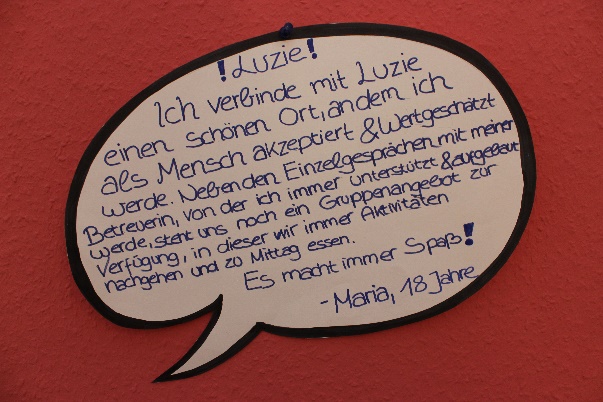 !Luzie!
Ich verbinde mit Luzie
einen schönen Ort, an dem ich
als Mensch akzeptiert & Wertgeschätzt
werde. Neben den Einzelgesprächen mit meiner
Betreuerin, von der ich immer unterstützt & aufgebaut
werde, steht uns noch ein Gruppenangebot zur
Verfügung, in dieser wir immer Aktivitäten
nachgehen und zu Mittag essen.
Es macht immer Spaß!
-Maria, 18 Jahre